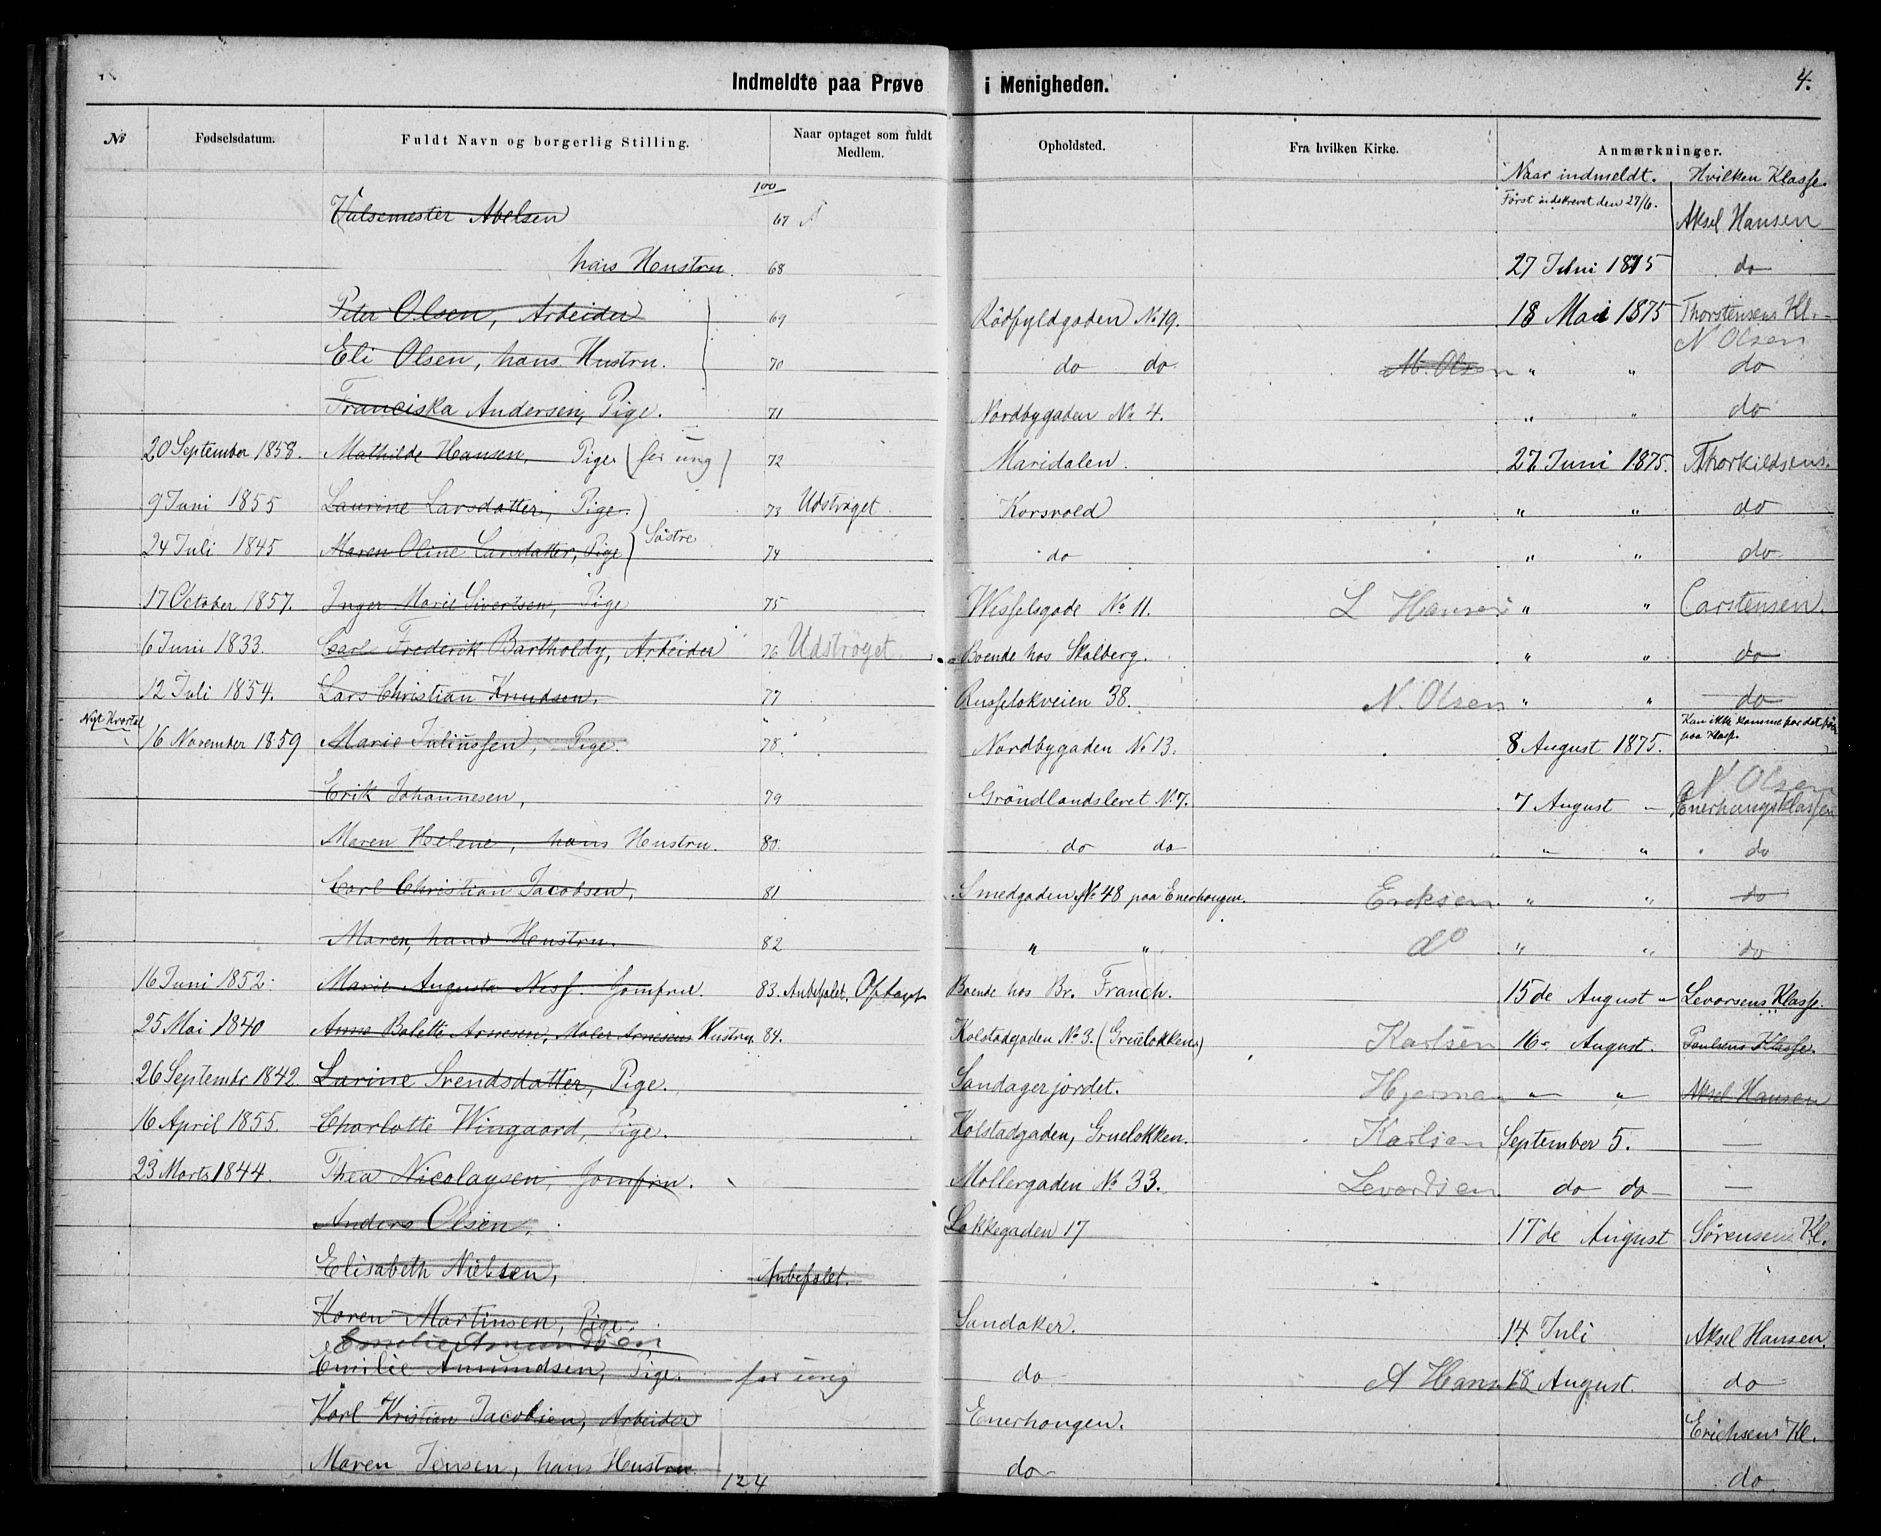 Indmeldte paa Prøve i Menigheden. 4.
No Fødselsdatum. Fuldt Navn og borgerlig Stilling. Naar optaget som fuldt Medlem. Opholdsted. Fra hvilken Kirke. Anmærkninger.
Naar indmeldt. Hvilken Klasse.
100
Først indskrevet den 27/6.
Valsemester Abelsen 67 Aksel Hansen
hans Hustru. 68 27 Juni 1875 do
Peter Olsen, Arbeider 69 Rödfyldgaden No 19. 18 Mai 1875 Thorstensens Kl.
N Olsen
Eli Olsen, hans Hustru. 70 do do M. Olsen " " do
Franciska Andersen, Pige. 71 Nordbygaden No 4. " " do
20 September 1858. Mathilde Hansen, Pige (for ung) 72 Maridalen. 27 Juni 1875. Thorkildsens.
9 Juni 1855 Laurine Larsdatter, Pige. 73 Udströget Korsvold " " do
Söstre
24 Juli 1845 Maren Oline Larsdatter, Pige 74 do " " do
17 October 1857. Inger Marie Sivertsen, Pige 75 Wesselsgade No 11. L Hansen " " Carstensen.
6 Juni 1833. Carl Frederik Bartholdy, Arbeider 76 Udströget Boende hos Skalberg. " " do
12 Juli 1854. Lars Christian Knudsen. 77 Russelokveien 38. N. Olsen " " do
Nyt Kvartal
Kan ikke komme for det paa Klasse.
16 November 1859 Marie Juliussen, Pige. 78. Nordbygaden No 13. 8 August 1875.
N Olsen
Erik Johannesen, 79 Gröndlandsleret No 7. 7 August - Enerhaugsklassen
Maren Helene, hans Hustru. 80. do do " " do
Carl Christian Jacobsen, 81 Smedgaden No 48 paa Enerhaugen. Eriksen " " do
Maren, hans Hustru. 82 " " do " " do
16 Juni 1852. Marie Augusta Ness. Jomfru. 83. Anbefalet, Optaget Boende hos Br. Franch. 15de August " Levorsens Klasse.
25 Mai 1840 Anne Bolette Arnesen, Maler Arnesens Hustru, 84. Kolstadgaden No 3. (Gruelökken) Karlsen 16- August. Paulsens Klasse.
26 Septembr 1842. Larine Svendsdatter, Pige. Sandagerjordet. " " Aksel Hansen
16 April 1855. Charlotte Wingaard, Pige. Kolstadgaden, Gruelökken. Karlsen September 5. —
23 Marts 1844. Thea Nicolaysen, Jomfru. Mollergaden No 33. Levordsen do do —
Anders Olsen, Løkkegaden 17 17de August Sørensens Kl.
Elisabeth Nielsen, Anbefalet.
Karen Martinsen, Pige. Sandaker. 14 Juli Aksel Hansen.
Emelie Amundsen
Emilie Amundsen, Pige. for ung do A Hansen 18 August. do
Karl Kristian Jacobsen, Arbeider Enerhaugen. Erichsens Kl.
Maren Jensen, hans Hustru do do.
124